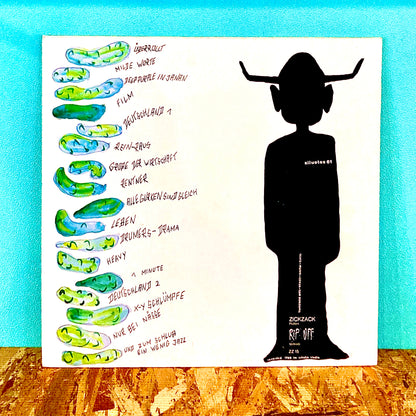 ÜBERROLLT
MILDE WORTE
DEEP PURPLE IN JAPAN
FILM
DEUTSCHLAND 1
REIN-RAUS
GRÖßE DER WIRTSCHAFT
RENTNER
ALLE GURKEN SIND GLEICH
LEBEN
DRUMERS-DRAMA
HEAVY
1 MINUTE
DEUTSCHLAND 2
X-Y SCHLÜMPFE
NUR BEI NÄSSE
UND ZUM SCHLUß
EIN WENIG JAZZ
siluetes 61
ZICKZACK
RIP OFF
ZZ 15